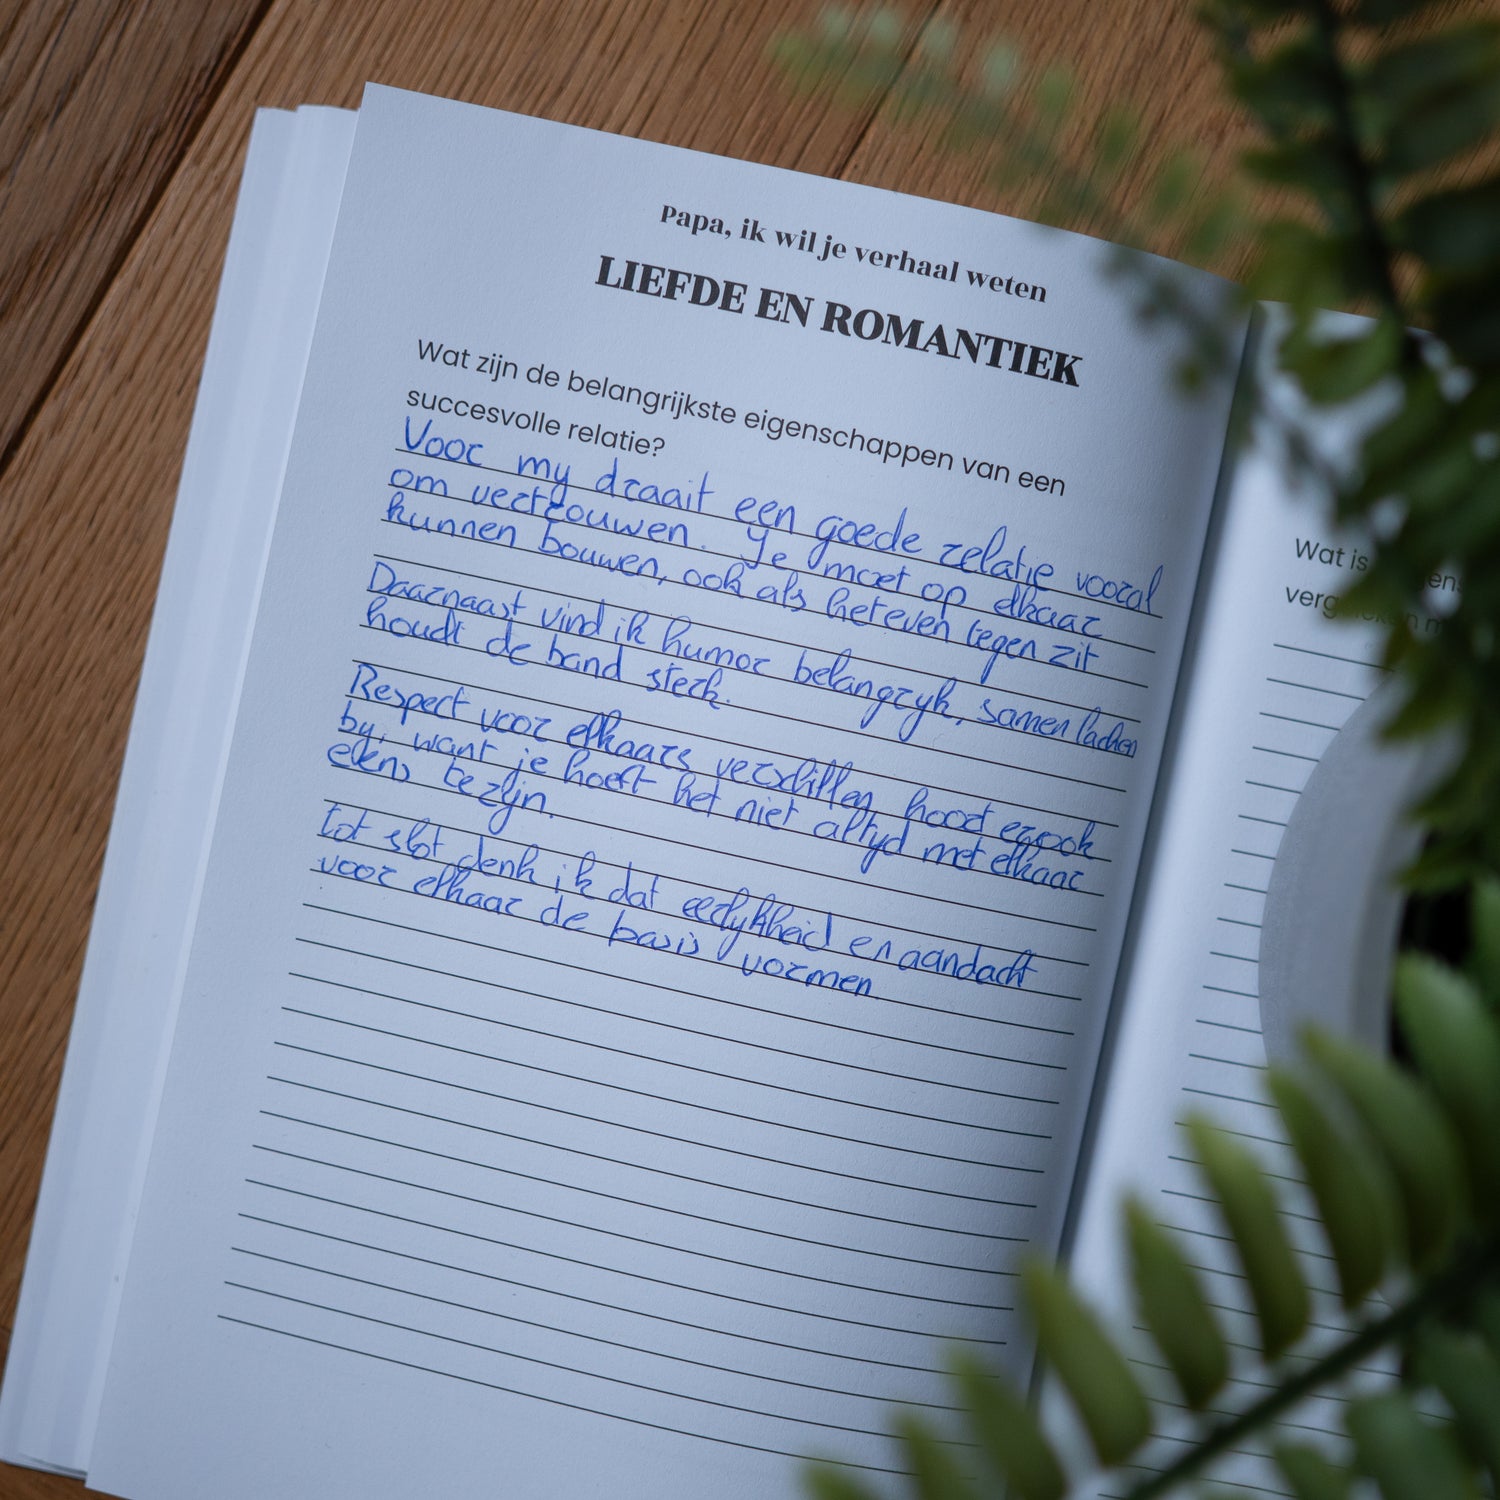 Papa, ik wil je verhaal weten
LIEFDE EN ROMANTIEK
Wat zijn de belangrijkste eigenschappen van een
succesvolle relatie?
Voor my draait een goede relatie vooral
om vertrouwen. Je moet op elkaar
kunnen bouwen, ook als het even tegen zit
Daarnaast vind ik humor belangryk, samen lachen
houdt de band sterk.
Respect voor elkaars verschillen hoort er ook
by, want je hoeft het niet altyd met elkaar
eens te zijn.
tot slot denk ik dat eerlykheid en aandacht
voor elkaar de basis vormen
Wat is